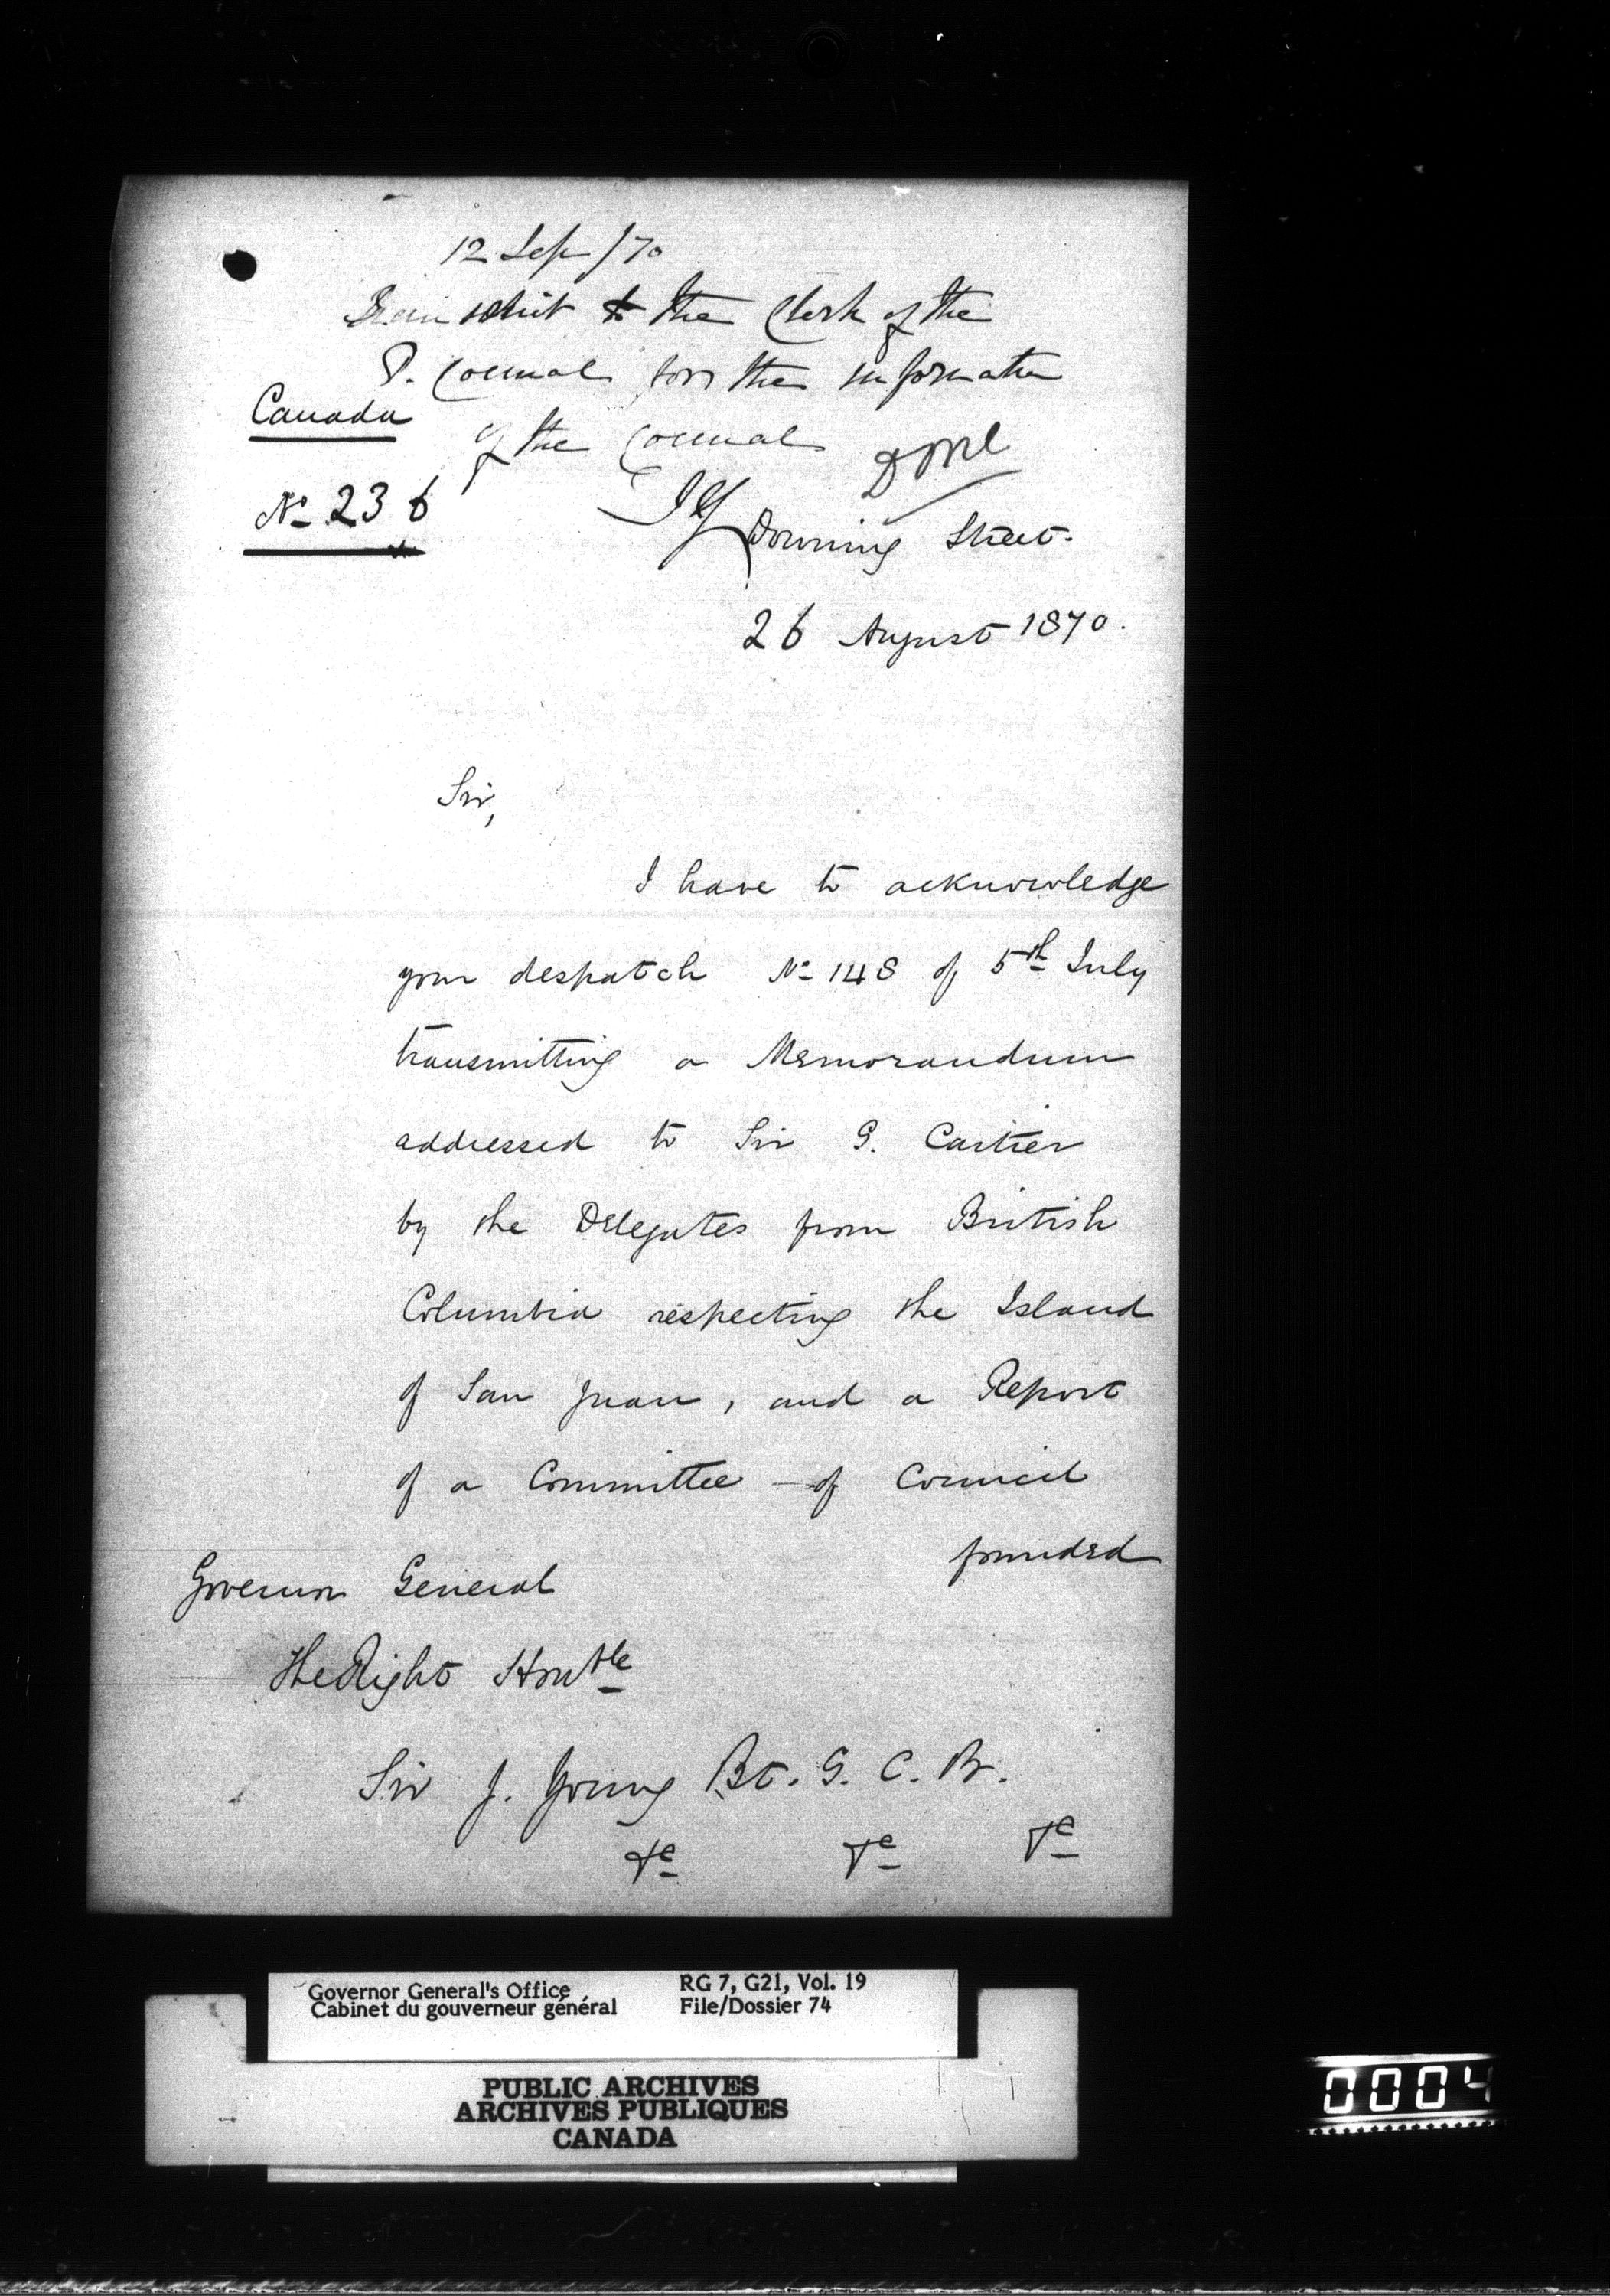 12 Sep /70
Transmit to the Clerk of the
P. Council for the information
of the Council
Done
JY
Canada
No 236
Downing Street.
26 August 1870.
Sir,
I have to acknowledge
your despatch No 148 of 5th July
transmitting a Memorandum
addressed to Sir G. Cartier
by the Delegates from British
Columbia respecting the Island
of San Juan, and a Report
of a Committee of Council
founded
Governor General
The Right Honble
Sir J. Young Bt. G. C. B.
&c &c &c
Governor General's Office
Cabinet du gouverneur général
RG 7, G21, Vol. 19
File/Dossier 74
PUBLIC ARCHIVES
ARCHIVES PUBLIQUES
CANADA
0004